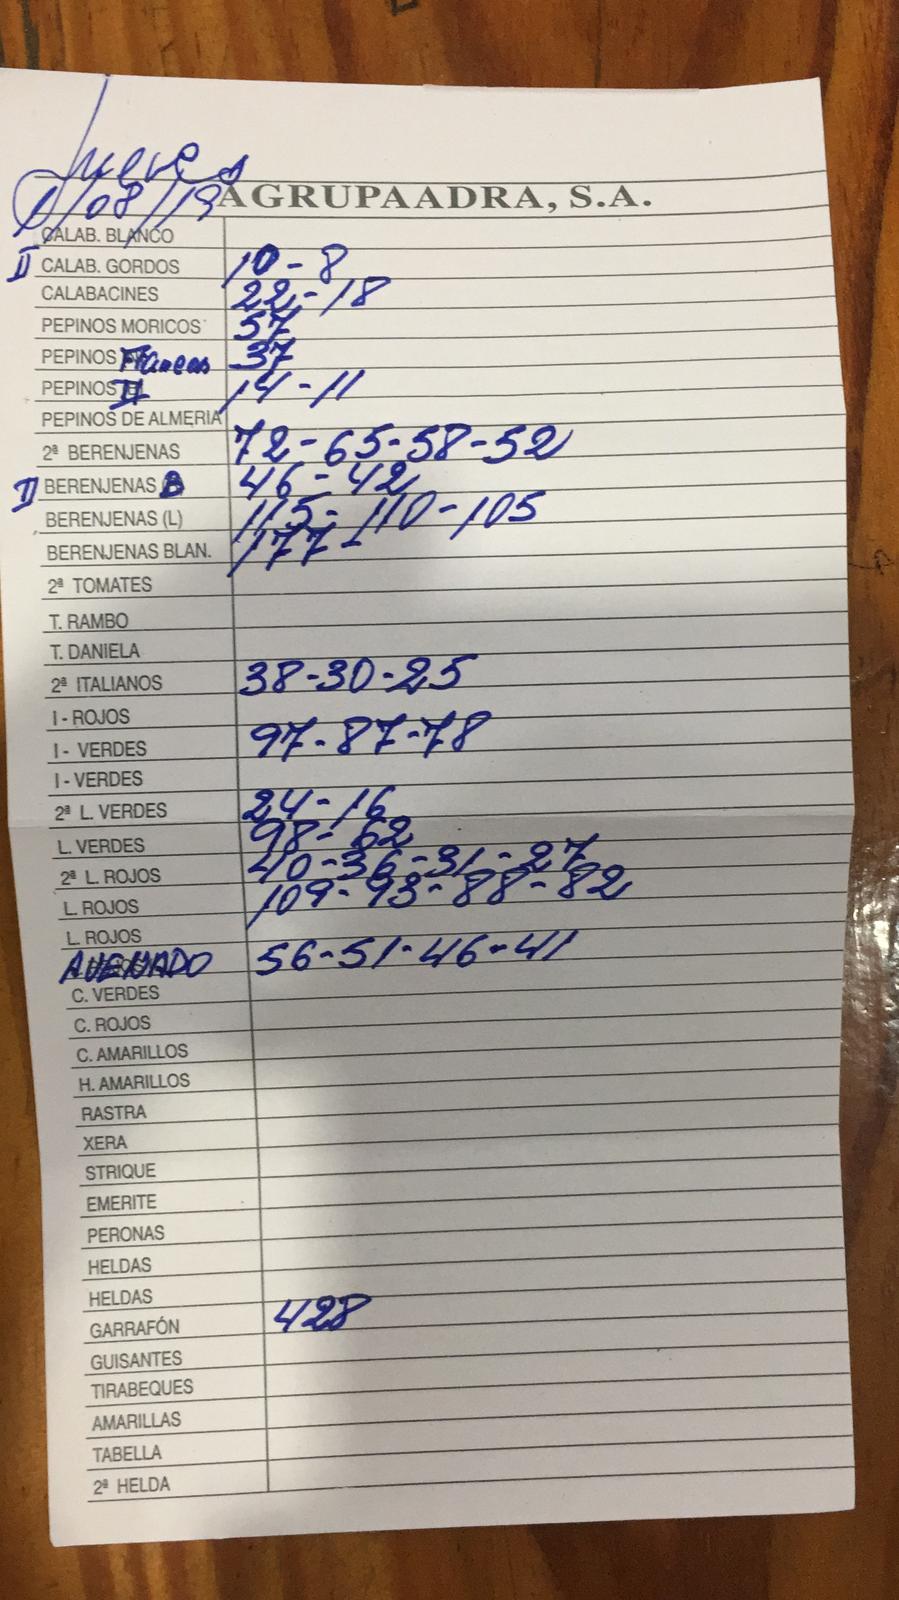 Jueves
1/08/19 AGRUPAADRA, S.A.
CALAB. BLANCO
II CALAB. GORDOS 10-8
CALABACINES 22-18
PEPINOS MORICOS 57
PEPINOS Franceos 37
PEPINOS II 14-11
PEPINOS DE ALMERIA
2ª BERENJENAS 72-65-58-52
II BERENJENAS B 46-42
BERENJENAS (L) 115-110-105
BERENJENAS BLAN. 177-
2ª TOMATES
T. RAMBO
T. DANIELA
2ª ITALIANOS 38-30-25
I - ROJOS
I - VERDES 97-87-78
I - VERDES
2ª L. VERDES 24-16
L. VERDES 98-62
2ª L. ROJOS 40-36-31-27
L. ROJOS 109-93-88-82
L. ROJOS
56-51-46-41
C. VERDES
C. ROJOS
C. AMARILLOS
H. AMARILLOS
RASTRA
XERA
STRIQUE
EMERITE
PERONAS
HELDAS
HELDAS
GARRAFÓN 428
GUISANTES
TIRABEQUES
AMARILLAS
TABELLA
2ª HELDA